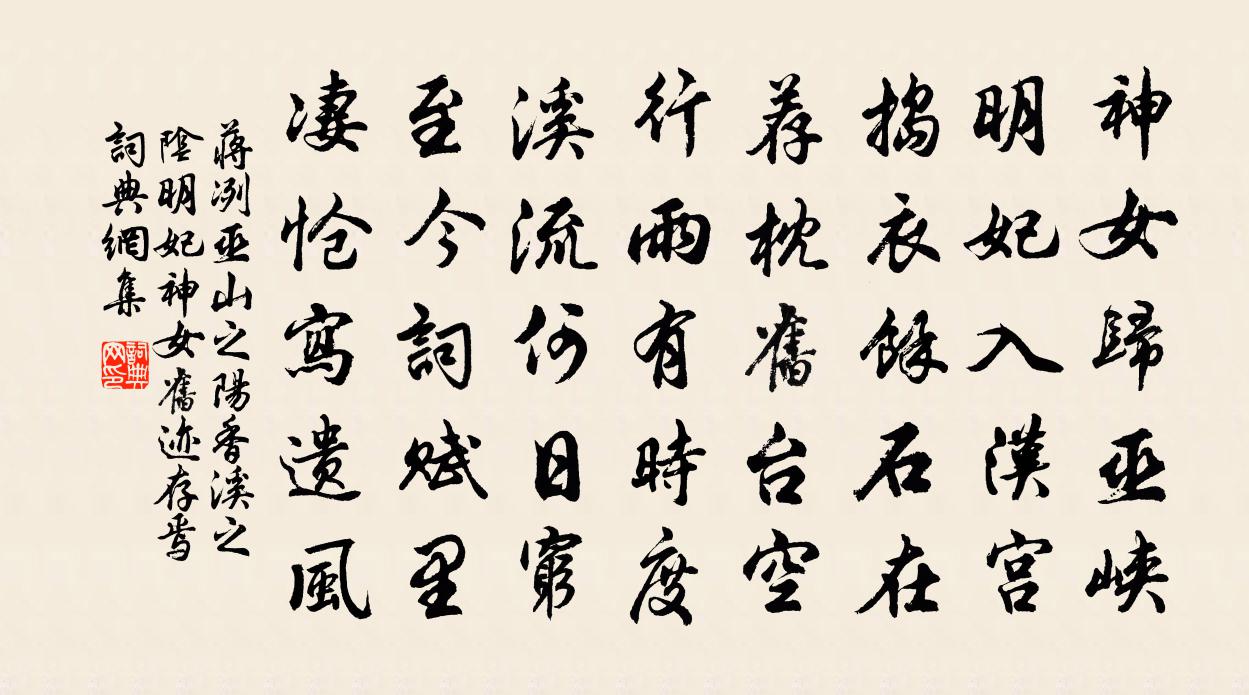 神女歸巫峽
明妃入漢宮
搗衣餘石在
荐枕舊台空
行雨有時度
溪流何日窮
至今詞賦里
凄愴寫遺風
蔣冽巫山之陽香溪之
陰明妃神女舊迹存焉
詞典網集
詞典
网印